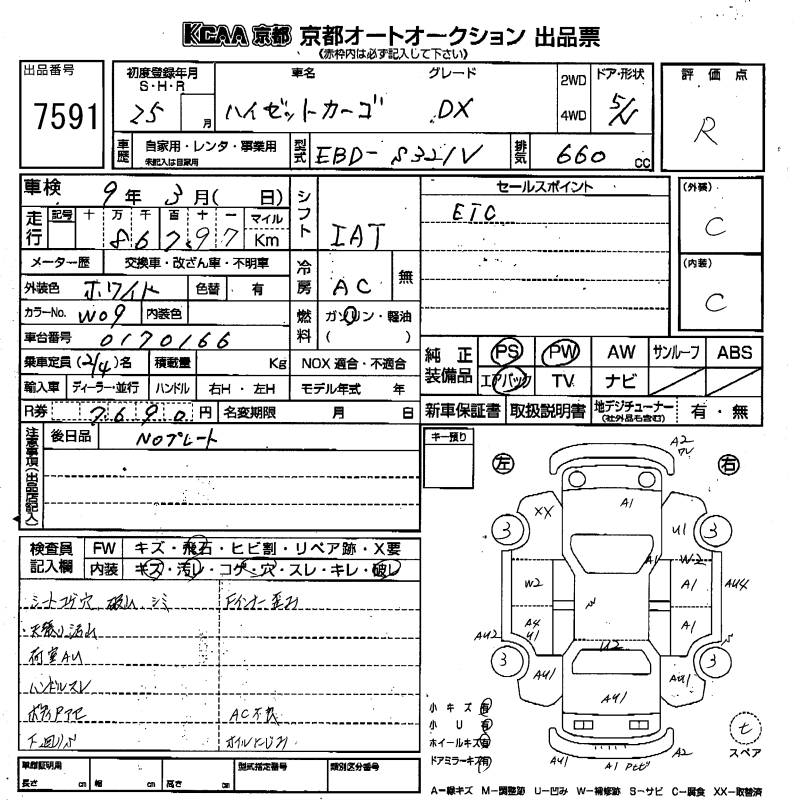 KCAA 京都 京都オートオークション 出品票
《赤枠内は必ず記入して下さい》
出品番号 7591
初度登録年月 S・H・R 25 月
車名 ハイゼットカーゴ
グレード DX
2WD 4WD
ドア・形状 5/V
評価点 R
車歴 自家用・レンタ・事業用 未記入は自家用
型式 EBD-S321V
排気 660 CC
車検 9年 3月( 日)
シフト IAT
セールスポイント
ETC
(外装) C
(内装) C
走行 記号 十 万 千 百 十 一 マイル
86797 Km
メーター歴 交換車・改ざん車・不明車
冷房 AC 無
外装色 ホワイト 色替 有
カラーNo. W09 内装色
燃料 ガソリン・軽油 ( )
車台番号 0170166
乗車定員 (2/4)名 積載量 Kg NOX 適合・不適合
輸入車 ディーラー・並行 ハンドル 右H・左H モデル年式 年
R券 7690 円 名変期限 月 日
純正装備品 PS PW AW サンルーフ ABS
エアバック TV ナビ
新車保証書 取扱説明書 地デジチューナー (社外品も含む) 有・無
注意事項(出品店記入) 後日品 NOプレート
キー預り
左 右
検査員記入欄 FW キズ・飛石・ヒビ割・リペア跡・X要
内装 キズ・汚レ・コゲ・穴・スレ・キレ・破レ
・シートコゲ穴 破レ シミ
・天張り汚レ
荷室AU
ハンドルスレ
AC不良
オイルにじみ
A2
A1
XX
U1
3 3
A1 W2
W2 A1 AU4
A4 U1 A1
AU2 U2
3 3
AU1 AU1
AU1
AU1 A1 A2
小キズ 有
小U 有
ホイールキズ 有
ドアミラーキズ 有
t スペア
車庫証明用 長さ cm 幅 cm 高さ cm 型式指定番号 類別区分番号
A-線キズ M-調整跡 U-凹み W-補修跡 S-サビ C-腐食 XX-取替済